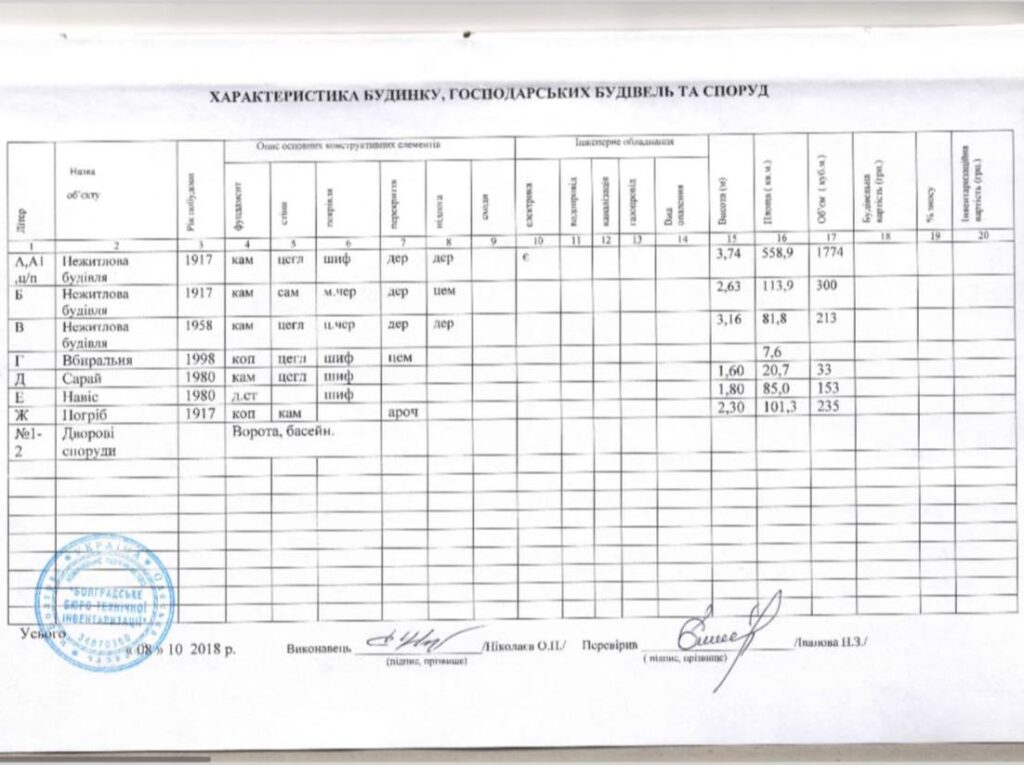 ХАРАКТЕРИСТИКА БУДИНКУ, ГОСПОДАРСЬКИХ БУДІВЕЛЬ ТА СПОРУД
Літер Назва об'єкту Рік побудови Опис основних конструктивних елементів Інженерне обладнання Висота (м) Площа ( кв.м.) Об'єм ( куб.м.) Будівельна вартість (грн.) % зносу Інвентаризаційна вартість (грн.)
фундамент стіни покрівля перекриття підлога сходи електрика водопровід каналізація газопровід Вид опалення
1 2 3 4 5 6 7 8 9 10 11 12 13 14 15 16 17 18 19 20
А,А1 Нежитлова 1917 кам цегл шиф дер дер є 3,74 558,9 1774
,ц/п будівля
Б Нежитлова 1917 кам сам м.чер дер цем 2,63 113,9 300
будівля
В Нежитлова 1958 кам цегл ц.чер дер дер 3,16 81,8 213
будівля
Г Вбиральня 1998 коп цегл шиф цем 7,6
Д Сарай 1980 кам цегл шиф 1,60 20,7 33
Е Навіс 1980 д.ст шиф 1,80 85,0 153
Ж Погріб 1917 коп кам ароч 2,30 101,3 235
№1- Дворові Ворота, басейн.
2 споруди
УКРАЇНА
"БОЛГРАДСЬКЕ
БЮРО ТЕХНІЧНОЇ
ІНВЕНТАРИЗАЦІЇ"
Усього
« 08 » 10 2018 р. Виконавець /Ніколаєв О.П./ Перевірив /Іванова Н.З./
(підпис, прізвище) ( підпис, прізвище)